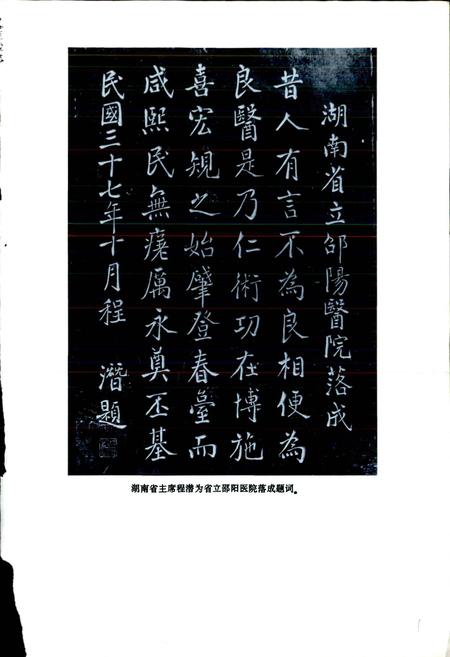 湖南省立邵陽醫院落成
昔人有言不為良相便為
良醫是乃仁術功在博施
喜宏規之始肇登春臺而
咸熙民無瘥厲永奠丕基
民國三十七年十月程 潛題
湖南省主席程潜为省立邵阳医院落成题词。